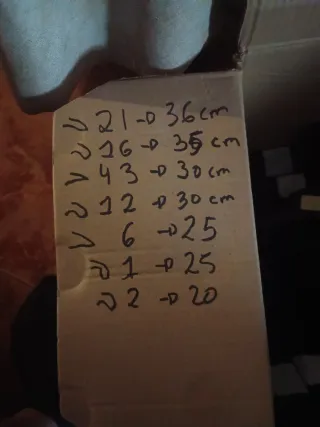 ✓ 21 → 36 cm
✓ 16 → 35 cm
✓ 43 → 30 cm
✓ 12 → 30 cm
✓ 6 → 25
✓ 1 → 25
✓ 2 → 20